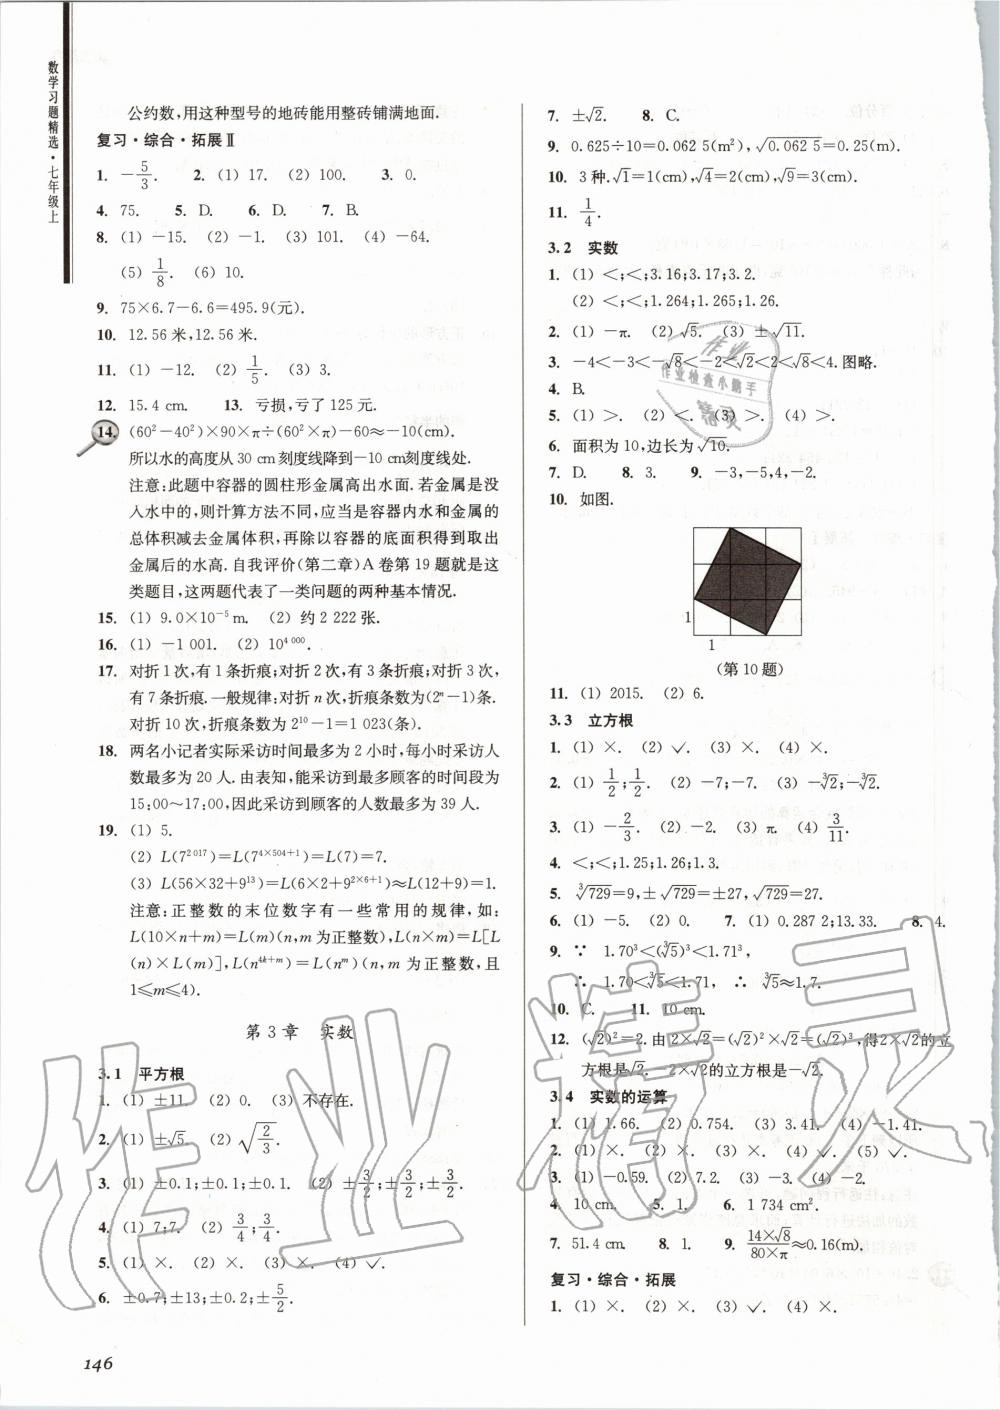 数学习题精选·七年级上
公约数,用这种型号的地砖能用整砖铺满地面.
复习·综合·拓展Ⅱ
1. －5/3. 2. (1) 17. (2) 100. 3. 0.
4. 75. 5. D. 6. D. 7. B.
8. (1) －15. (2) －1. (3) 101. (4) －64.
(5) 1/8. (6) 10.
9. 75×6.7－6.6＝495.9(元).
10. 12.56 米,12.56 米.
11. (1) －12. (2) 1/5. (3) 3.
12. 15.4 cm. 13. 亏损,亏了 125 元.
14. (60²－40²)×90×π÷(60²×π)－60≈－10(cm).
所以水的高度从 30 cm 刻度线降到－10 cm刻度线处.
注意:此题中容器的圆柱形金属高出水面.若金属是没
入水中的,则计算方法不同,应当是容器内水和金属的
总体积减去金属体积,再除以容器的底面积得到取出
金属后的水高.自我评价(第二章)A 卷第 19 题就是这
类题目,这两题代表了一类问题的两种基本情况.
15. (1) 9.0×10⁻⁵ m. (2) 约 2 222 张.
16. (1) －1 001. (2) 10⁴ ⁰⁰⁰.
17. 对折 1 次,有 1 条折痕;对折 2 次,有 3 条折痕;对折 3 次,
有 7 条折痕.一般规律:对折 n 次,折痕条数为(2ⁿ－1)条.
对折 10 次,折痕条数为 2¹⁰－1＝1 023(条).
18. 两名小记者实际采访时间最多为 2 小时,每小时采访人
数最多为 20 人.由表知,能采访到最多顾客的时间段为
15:00～17:00,因此采访到顾客的人数最多为 39 人.
19. (1) 5.
(2) L(7² ⁰¹⁷)＝L(7⁴ˣ⁵⁰⁴⁺¹)＝L(7)＝7.
(3) L(56×32＋9¹³)＝L(6×2＋9²ˣ⁶⁺¹)≈L(12＋9)＝1.
注意:正整数的末位数字有一些常用的规律,如:
L(10×n＋m)＝L(m)(n,m 为正整数),L(n×m)＝L[L
(n)×L(m)],L(n⁴ᵏ⁺ᵐ)＝L(nᵐ)(n,m 为正整数,且
1≤m≤4).
第 3 章 实数
3.1 平方根
1. (1) ±11. (2) 0. (3) 不存在.
2. (1) ±√5. (2) √(2/3).
3. (1) ±0.1;±0.1;±0.1. (2) ±3/2;±3/2;±3/2.
4. (1) 7;7. (2) 3/4;3/4.
5. (1) ×. (2) ×. (3) ×. (4) ✓.
6. ±0.7;±13;±0.2;±5/2.
146
7. ±√2. 8. C.
9. 0.625÷10＝0.062 5(m²),√0.062 5＝0.25(m).
10. 3 种.√1＝1(cm),√4＝2(cm),√9＝3(cm).
11. 1/4.
3.2 实数
1. (1) ＜;＜;3.16;3.17;3.2.
(2) ＜;＜;1.264;1.265;1.26.
2. (1) －π. (2) √5. (3) ±√11.
3. －4＜－3＜－√8＜－2＜√2＜2＜√8＜4.图略.
4. B.
5. (1) ＞. (2) ＜. (3) ＞. (4) ＞.
6. 面积为 10,边长为√10.
7. D. 8. 3. 9. －3,－5,4,－2.
10. 如图.
1
1
(第 10 题)
11. (1) 2015. (2) 6.
3.3 立方根
1. (1) ×. (2) ✓. (3) ×. (4) ×.
2. (1) 1/2;1/2. (2) －7;－7. (3) －∛2;－∛2.
3. (1) －2/3. (2) －2. (3) π. (4) 3/11.
4. ＜;＜;1.25;1.26;1.3.
5. ∛729＝9,±√729＝±27,√729＝27.
6. (1) －5. (2) 0. 7. (1) 0.287 2;13.33. 8. 4.
9. ∵ 1.70³＜(∛5)³＜1.71³,
∴ 1.70＜∛5＜1.71, ∴ ∛5≈1.7.
10. C. 11. 10 cm.
12. (√2)²＝2.由 2×√2＝(√2)²×√2＝(√2)³,得2×√2的立
方根是√2.－2×√2的立方根是－√2.
3.4 实数的运算
1. (1) 1.66. (2) 0.754. (3) 3.41. (4) －1.41.
2. (1) ×. (2) ×. (3) ×. (4) ✓. (5) ✓.
3. (1) －0.59. (2) 7.2. (3) －3. (4) －2.
4. 10 cm. 5. 1. 6. 1 734 cm².
7. 51.4 cm. 8. 1. 9. 14×√8/80×π≈0.16(m).
复习·综合·拓展
1. (1) ×. (2) ×. (3) ✓. (4) ×.
作业精灵
作业
作业检查小鹅手
精灵